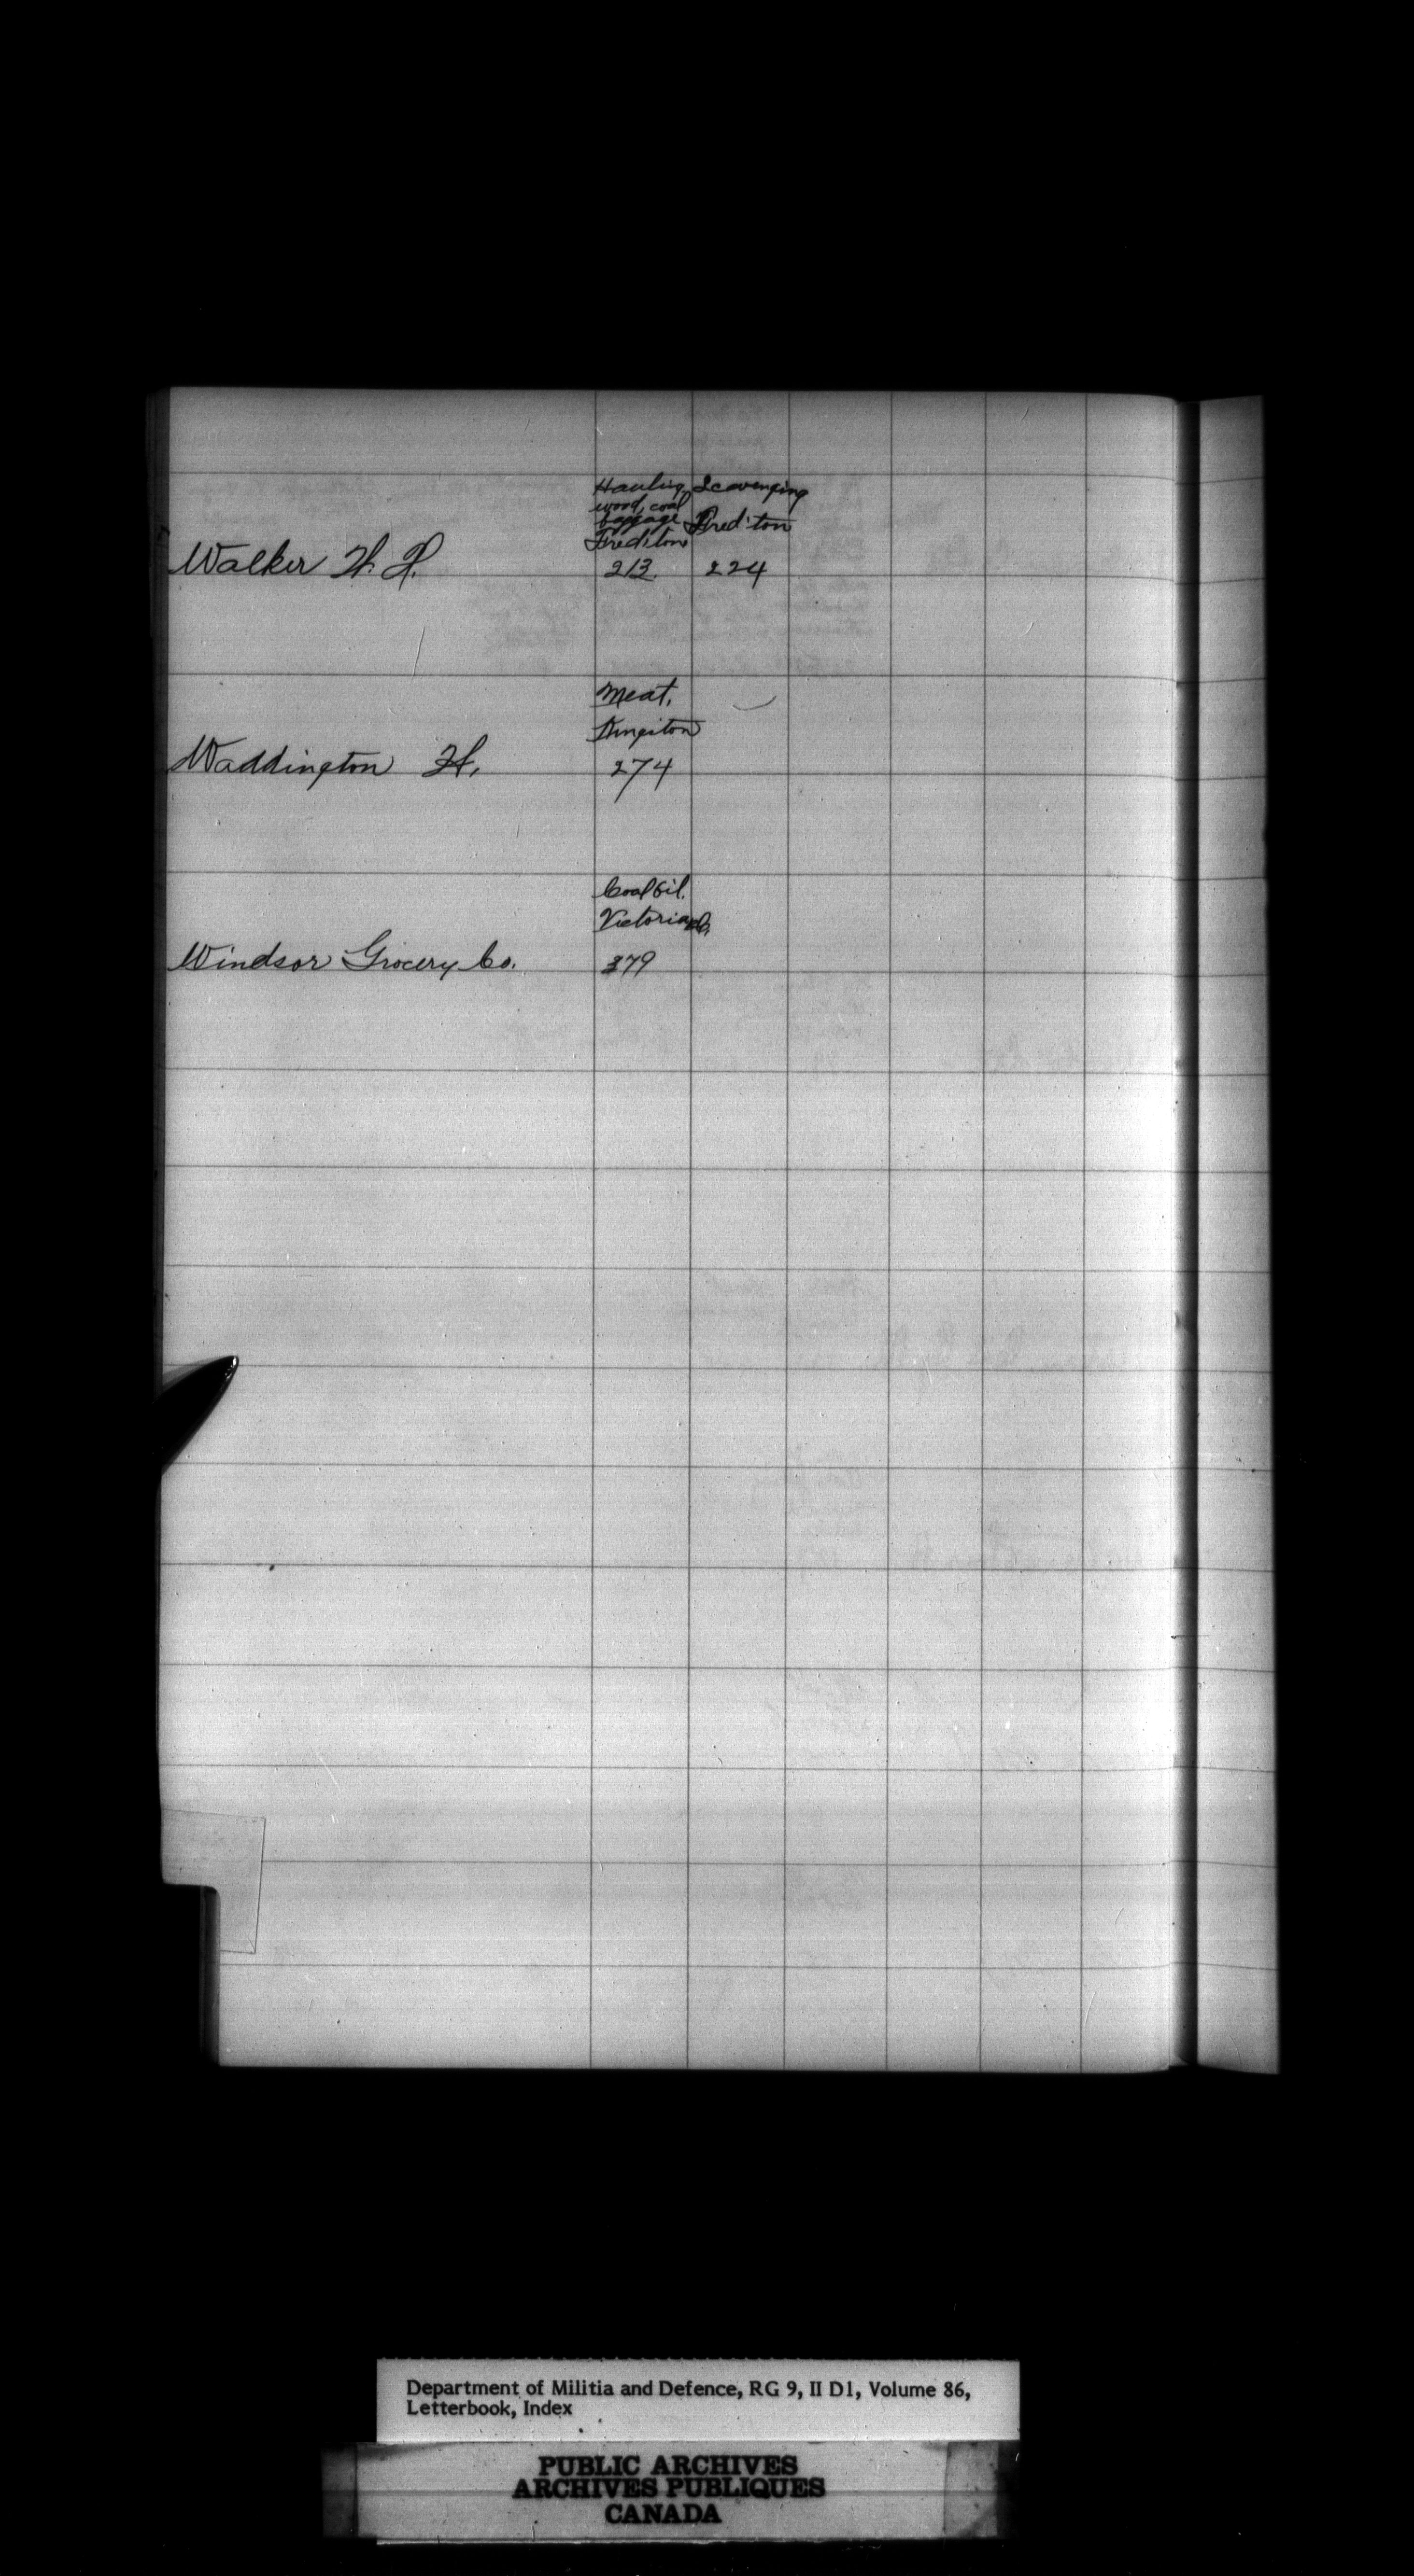 Hauling Scavenging
wood, coal
baggage Fred'ton
Fred'ton
Walker H. H. 213. 224
Meat,
Kingston
Waddington H. 274
Coal Oil.
Victoria
Windsor Grocery Co. 379
Department of Militia and Defence, RG 9, II D1, Volume 86,
Letterbook, Index
PUBLIC ARCHIVES
ARCHIVES PUBLIQUES
CANADA